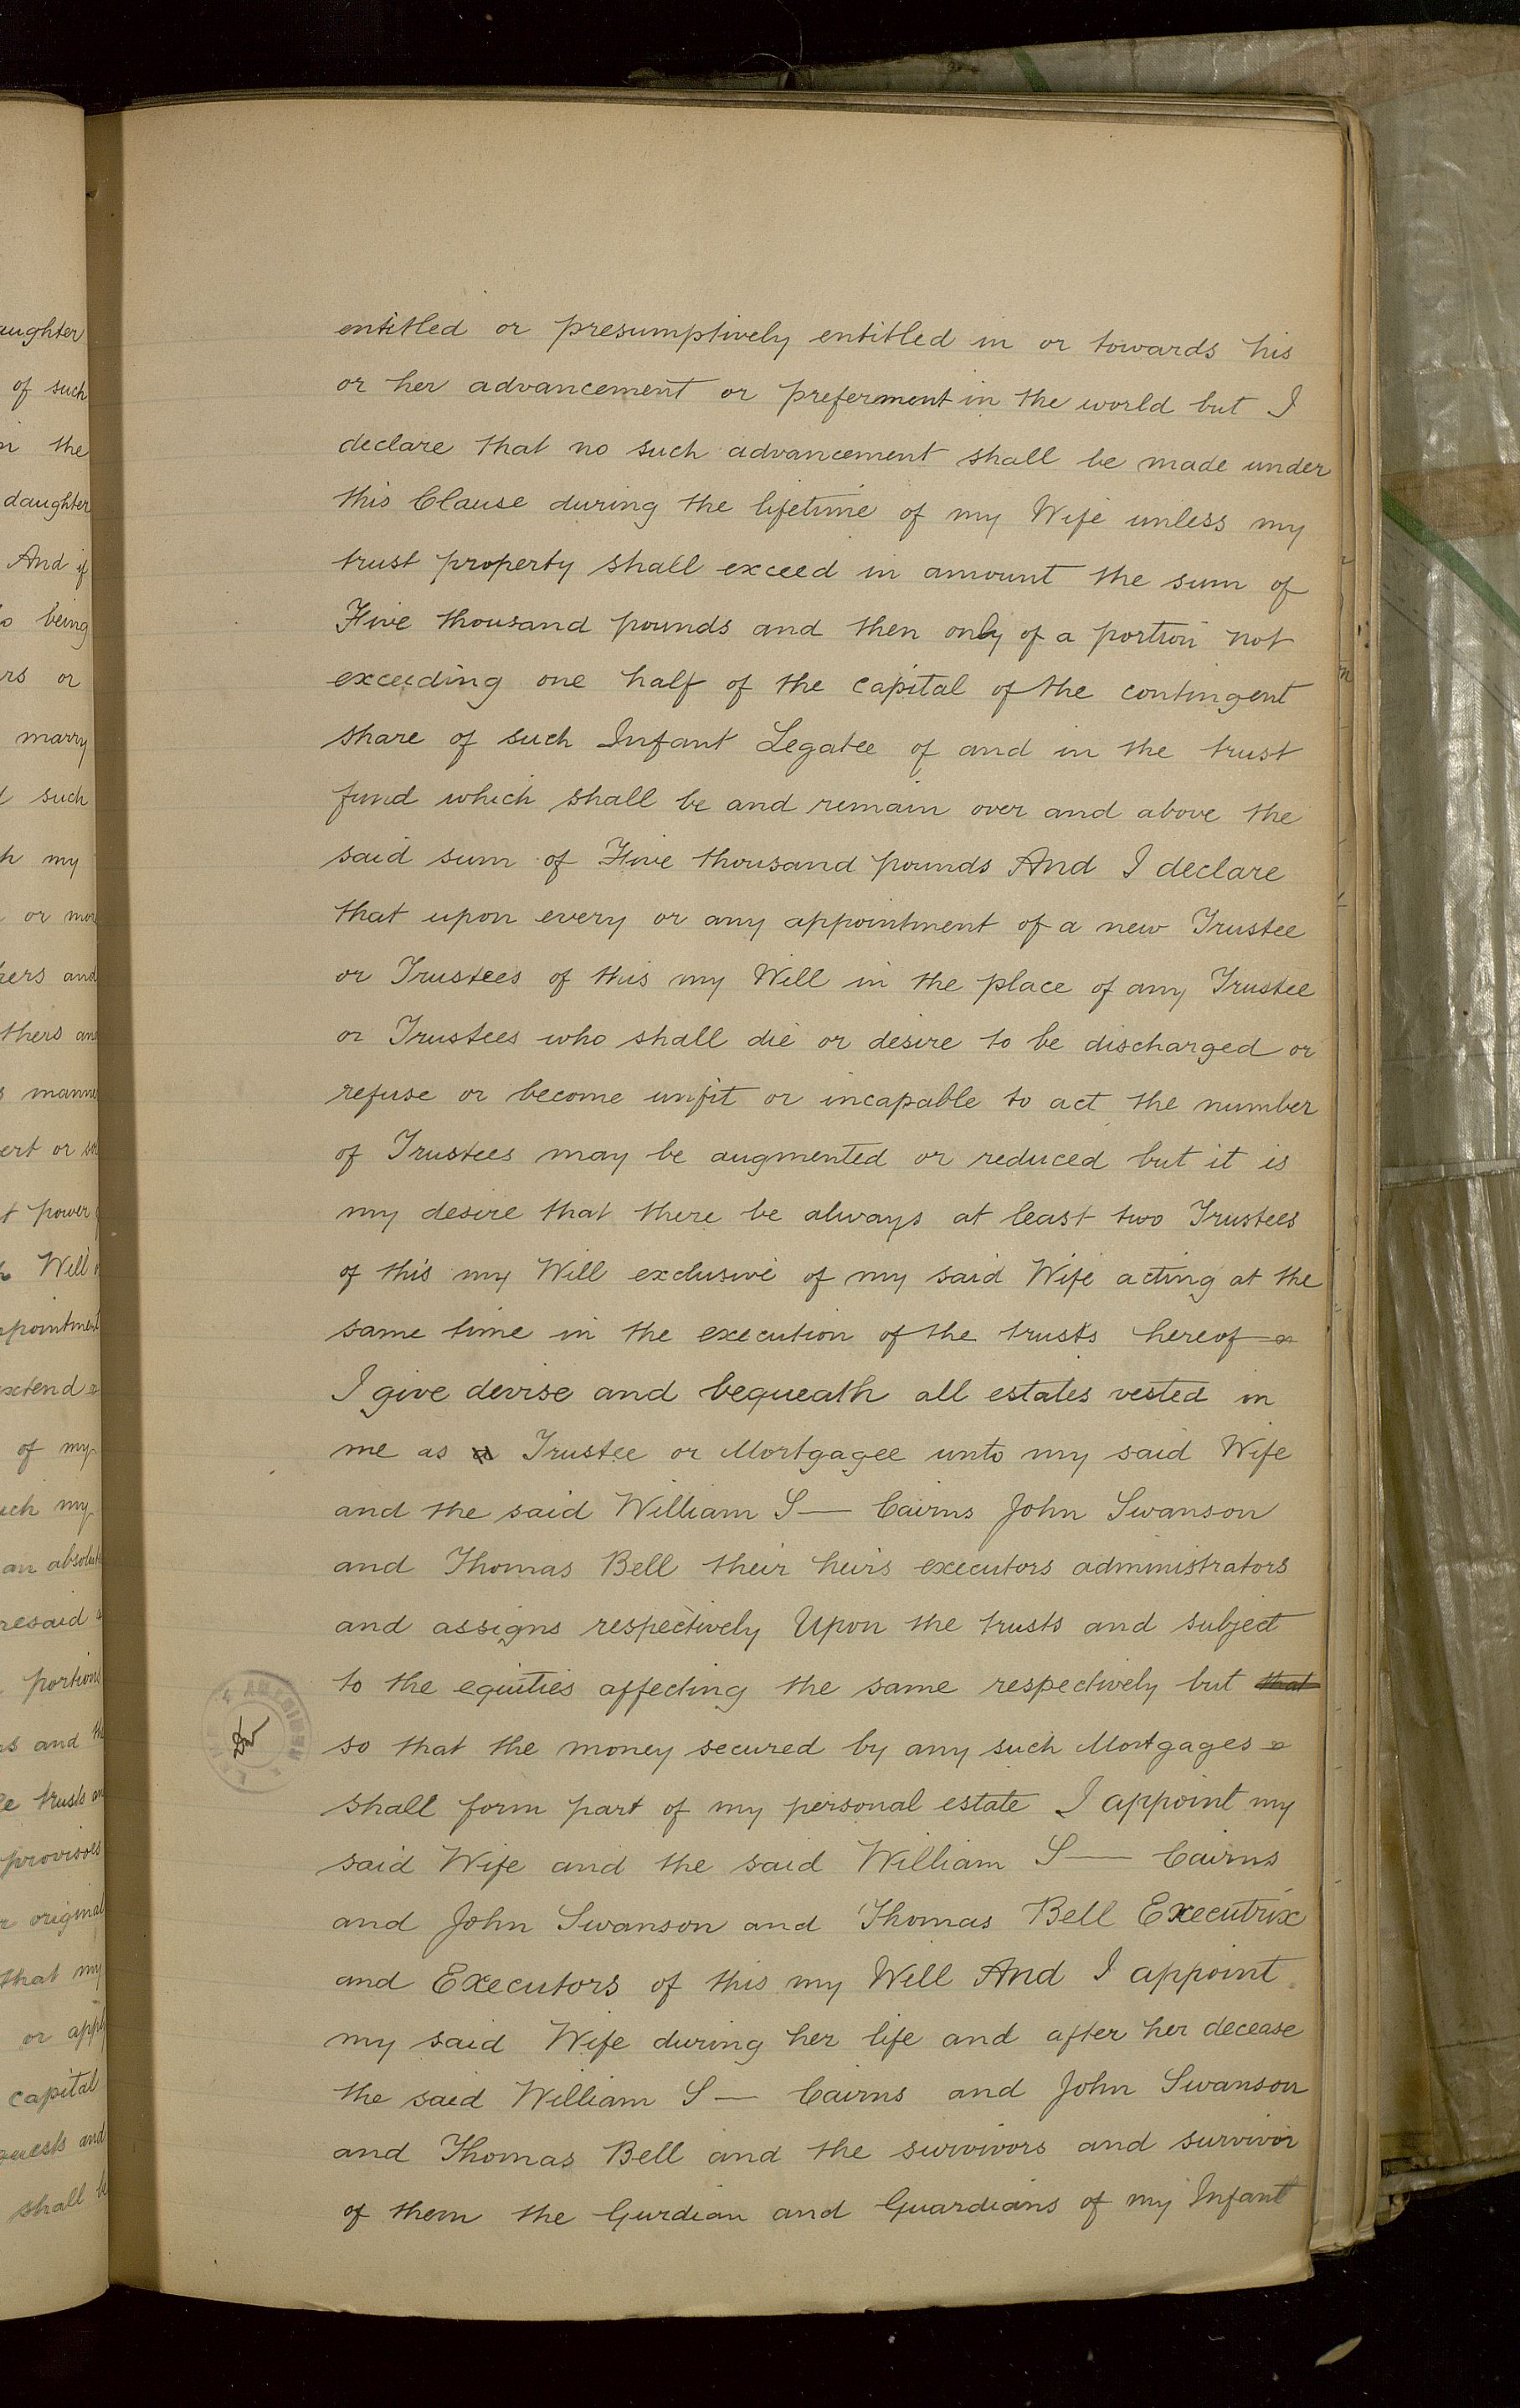 entitled or presumptively entitled in or towards his
or her advancement or preferment in the world but I
declare that no such advancement shall be made under
this Clause during the lifetime of my Wife unless my
trust property shall exceed in amount the sum of
Five thousand pounds and then only of a portion not
exceeding one half of the capital of the contingent
share of such Infant Legatee of and in the trust
fund which shall be and remain over and above the
said sum of Five thousand pounds And I declare
that upon every or any appointment of a new Trustee
or Trustees of this my Will in the place of any Trustee
or Trustees who shall die or desire to be discharged or
refuse or become unfit or incapable to act the number
of Trustees may be augmented or reduced but it is
my desire that there be always at least two Trustees
of this my Will exclusive of my said Wife acting at the
same time in the execution of the trusts hereof
I give devise and bequeath all estates vested in
me as a Trustee or Mortgagee unto my said Wife
and the said William S— Cairns John Swanson
and Thomas Bell their heirs executors administrators
and assigns respectively Upon the trusts and subject
to the equities affecting the same respectively but that
so that the money secured by any such Mortgages
shall form part of my personal estate I appoint my
said Wife and the said William S— Cairns
and John Swanson and Thomas Bell Executrix
and Executors of this my Will And I appoint
my said Wife during her life and after her decease
the said William S— Cairns and John Swanson
and Thomas Bell and the survivors and survivor
of them the Gurdian and Guardians of my Infant